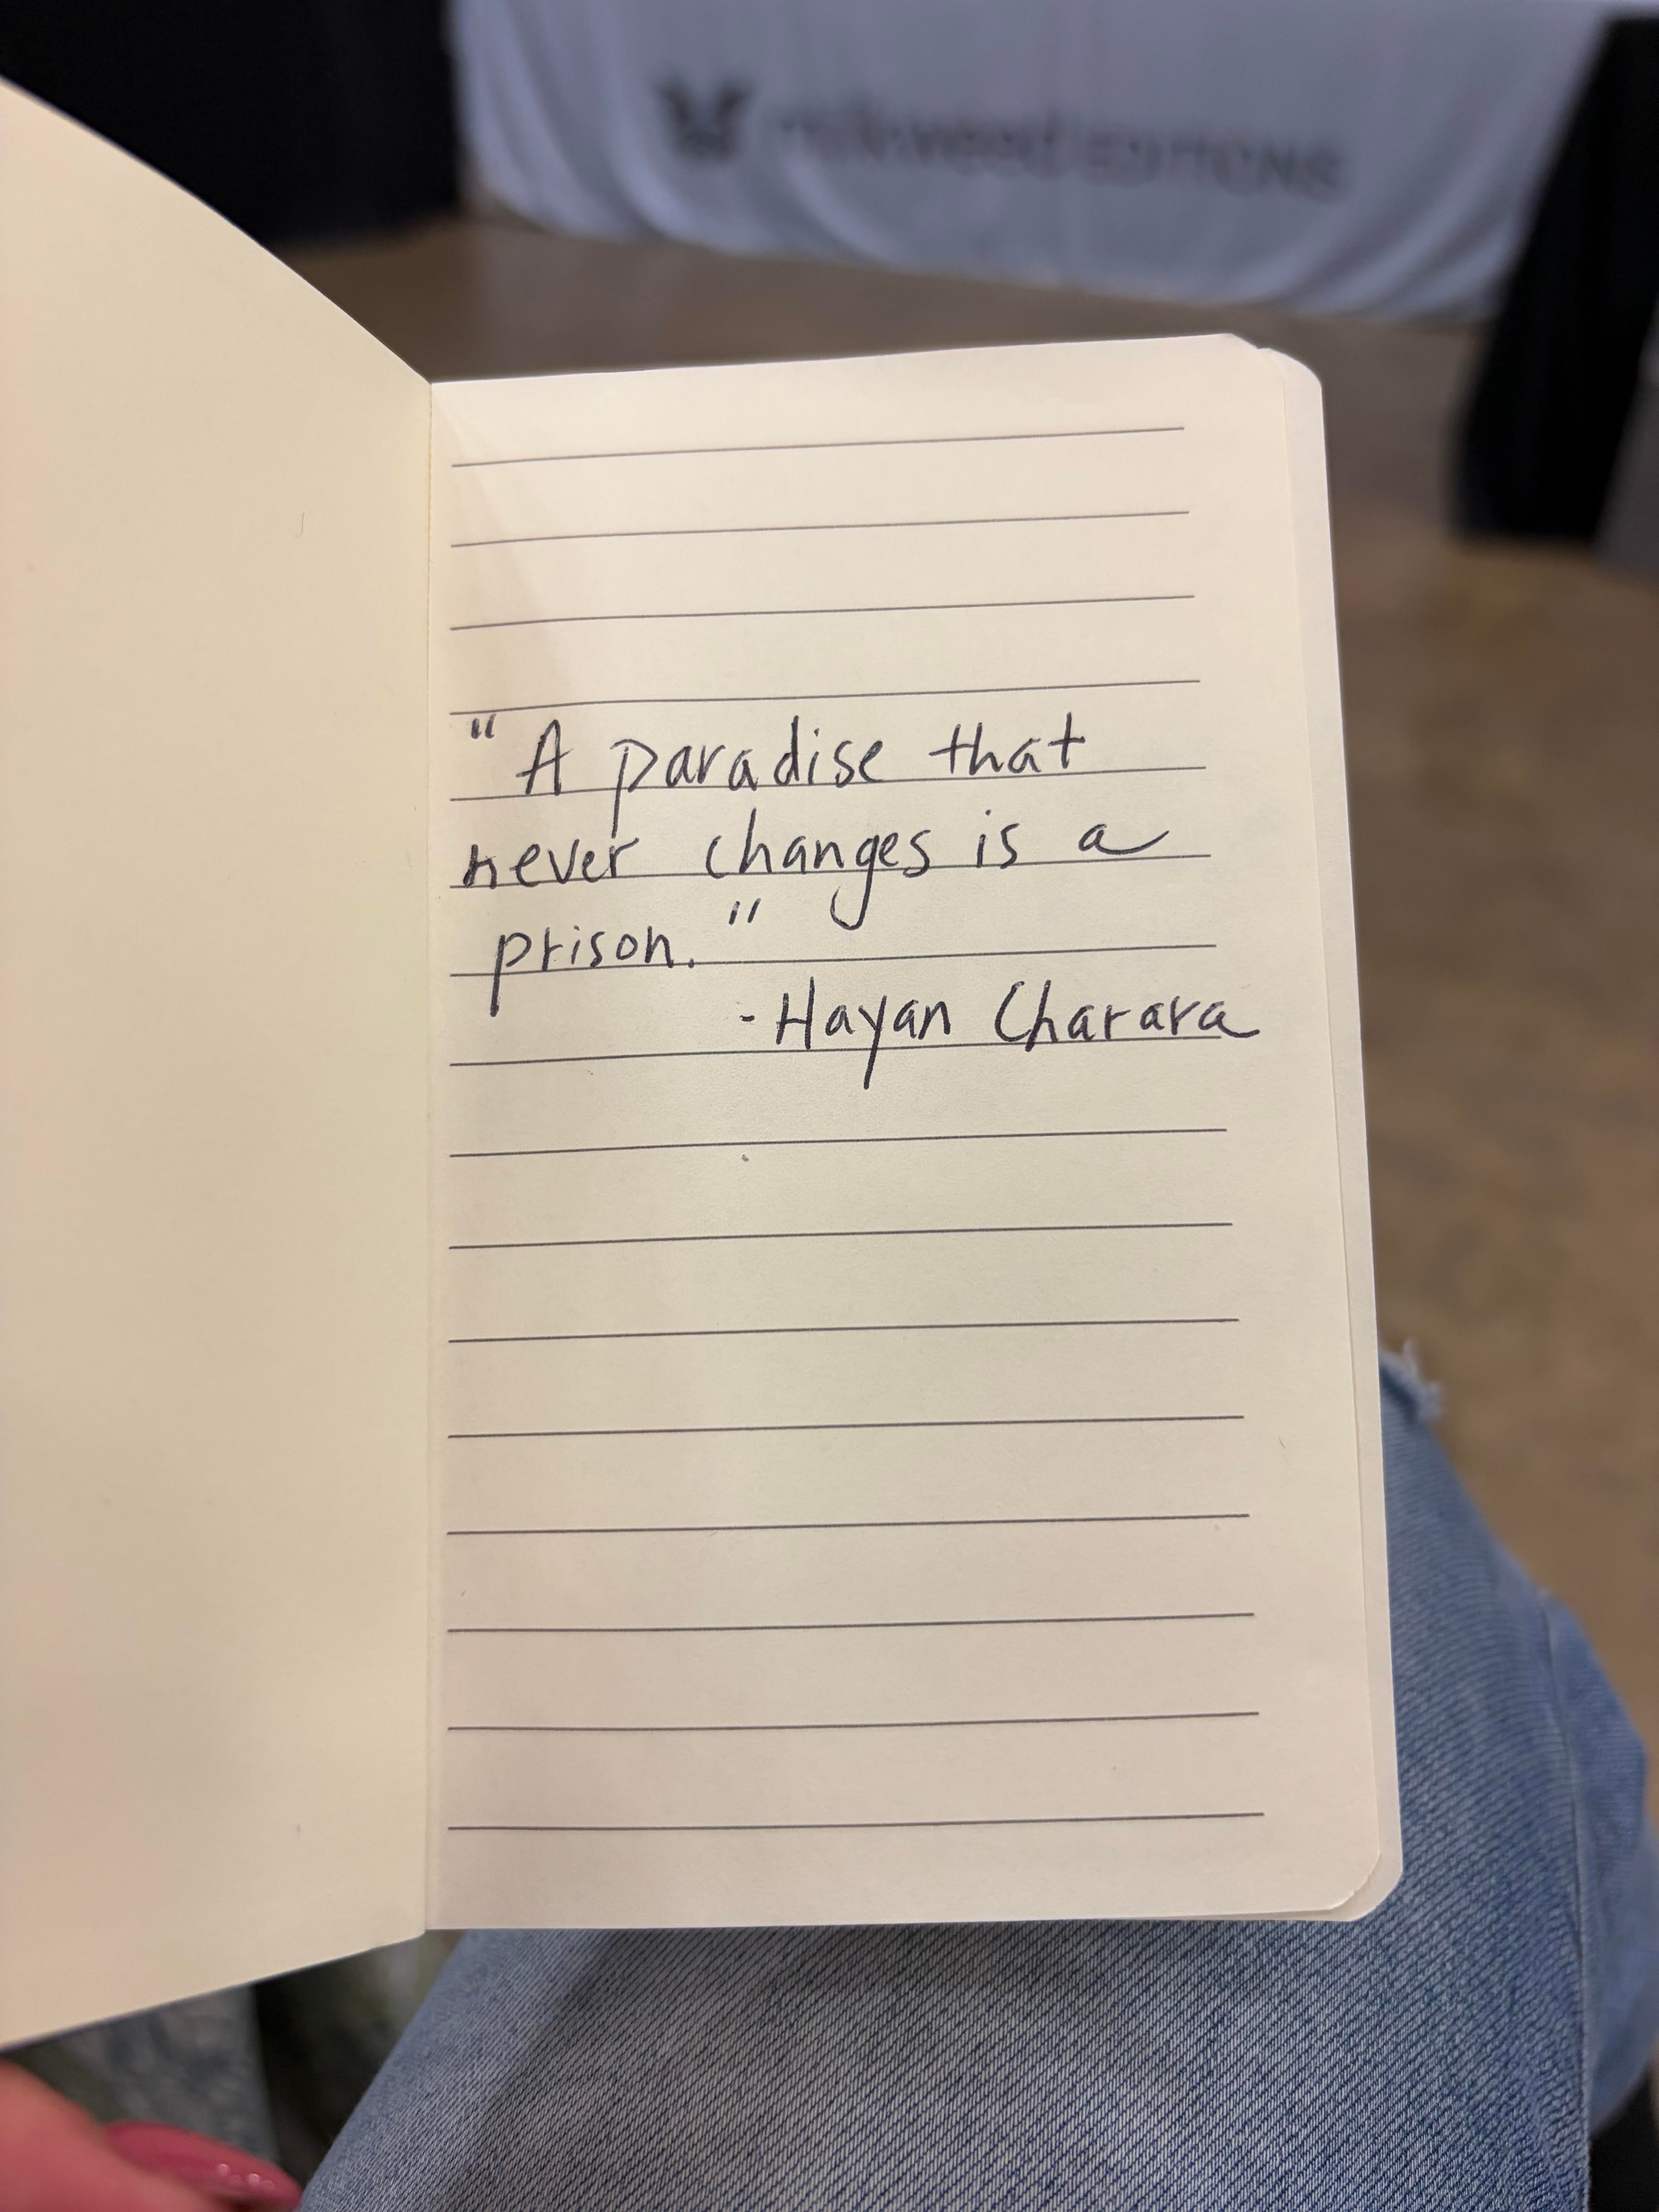 milkweed EDITIONS
"A paradise that
never changes is a
prison."
-Hayan Charara